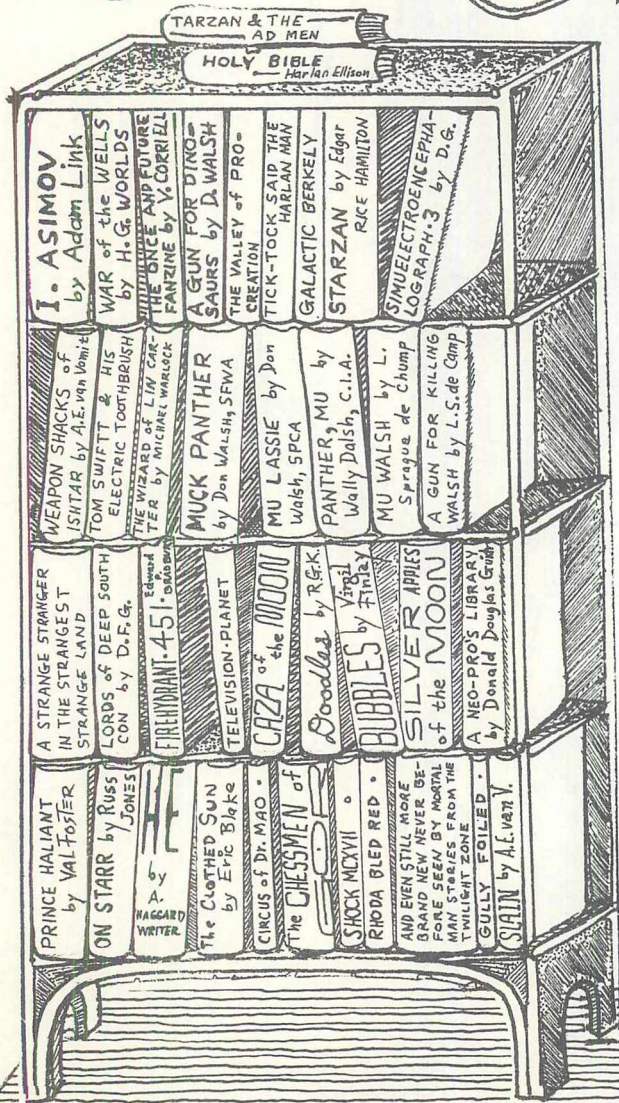 TARZAN & THE
AD MEN
HOLY BIBLE
Harlan Ellison
I. ASIMOV
by Adam Link
WAR of the WELLS
by H.G. WORLDS
THE ONCE AND FUTURE
FANZINE by V. CORRIELL
A GUN FOR DINO-
SAURS by D. WALSH
THE VALLEY of PRO-
CREATION
TICK-TOCK SAID THE
HARLAN MAN
GALACTIC BERKELY
STARZAN by Edgar
RICE HAMILTON
SIMUELECTROENCEPHA-
LOGRAPH·3 by D.G.
WEAPON SHACKS of
ISHTAR by A.E. van Vomit
TOM SWIFTT & HIS
ELECTRIC TOOTHBRUSH
THE WIZARD of LIN CAR-
TER by MICHAEL WARLOCK
MUCK PANTHER
by Don WALSH, SFWA
MU LASSIE by Don
Walsh, SPCA
PANTHER, MU by
Wally Dalsh, C.I.A.
MU WALSH by L.
Sprague de Chump
A GUN FOR KILLING
WALSH by L.S. de Camp
A STRANGE STRANGER
IN THE STRANGEST
STRANGE LAND
LORDS of DEEP SOUTH
CON by D.F.G.
FIREHYDRANT·451·
Edward
P.
BRADBURY
TELEVISION·PLANET
CAZA of
the MOON
Doodles by R.G.K.
BUBBLES by Virgil
Finlay
SILVER APPLES
of the MOON
A NEO-PRO'S LIBRARY
by Donald Douglas
PRINCE HALIANT
by VAL FOSTER
ON STARR by RUSS
JONES
by
A.
HAGGARD
WRITER
The CLOTHED SUN
by Eric Blake
CIRCUS of Dr. MAO·
The CHESSMEN of
SHOCK MCXVII·
RHODA BLED RED·
AND EVEN STILL MORE
BRAND NEW NEVER BE-
FORE SEEN BY MORTAL
MAN STORIES FROM THE
TWILIGHT ZONE
GULLY FOILED·
SLAIN by A.E. van V.